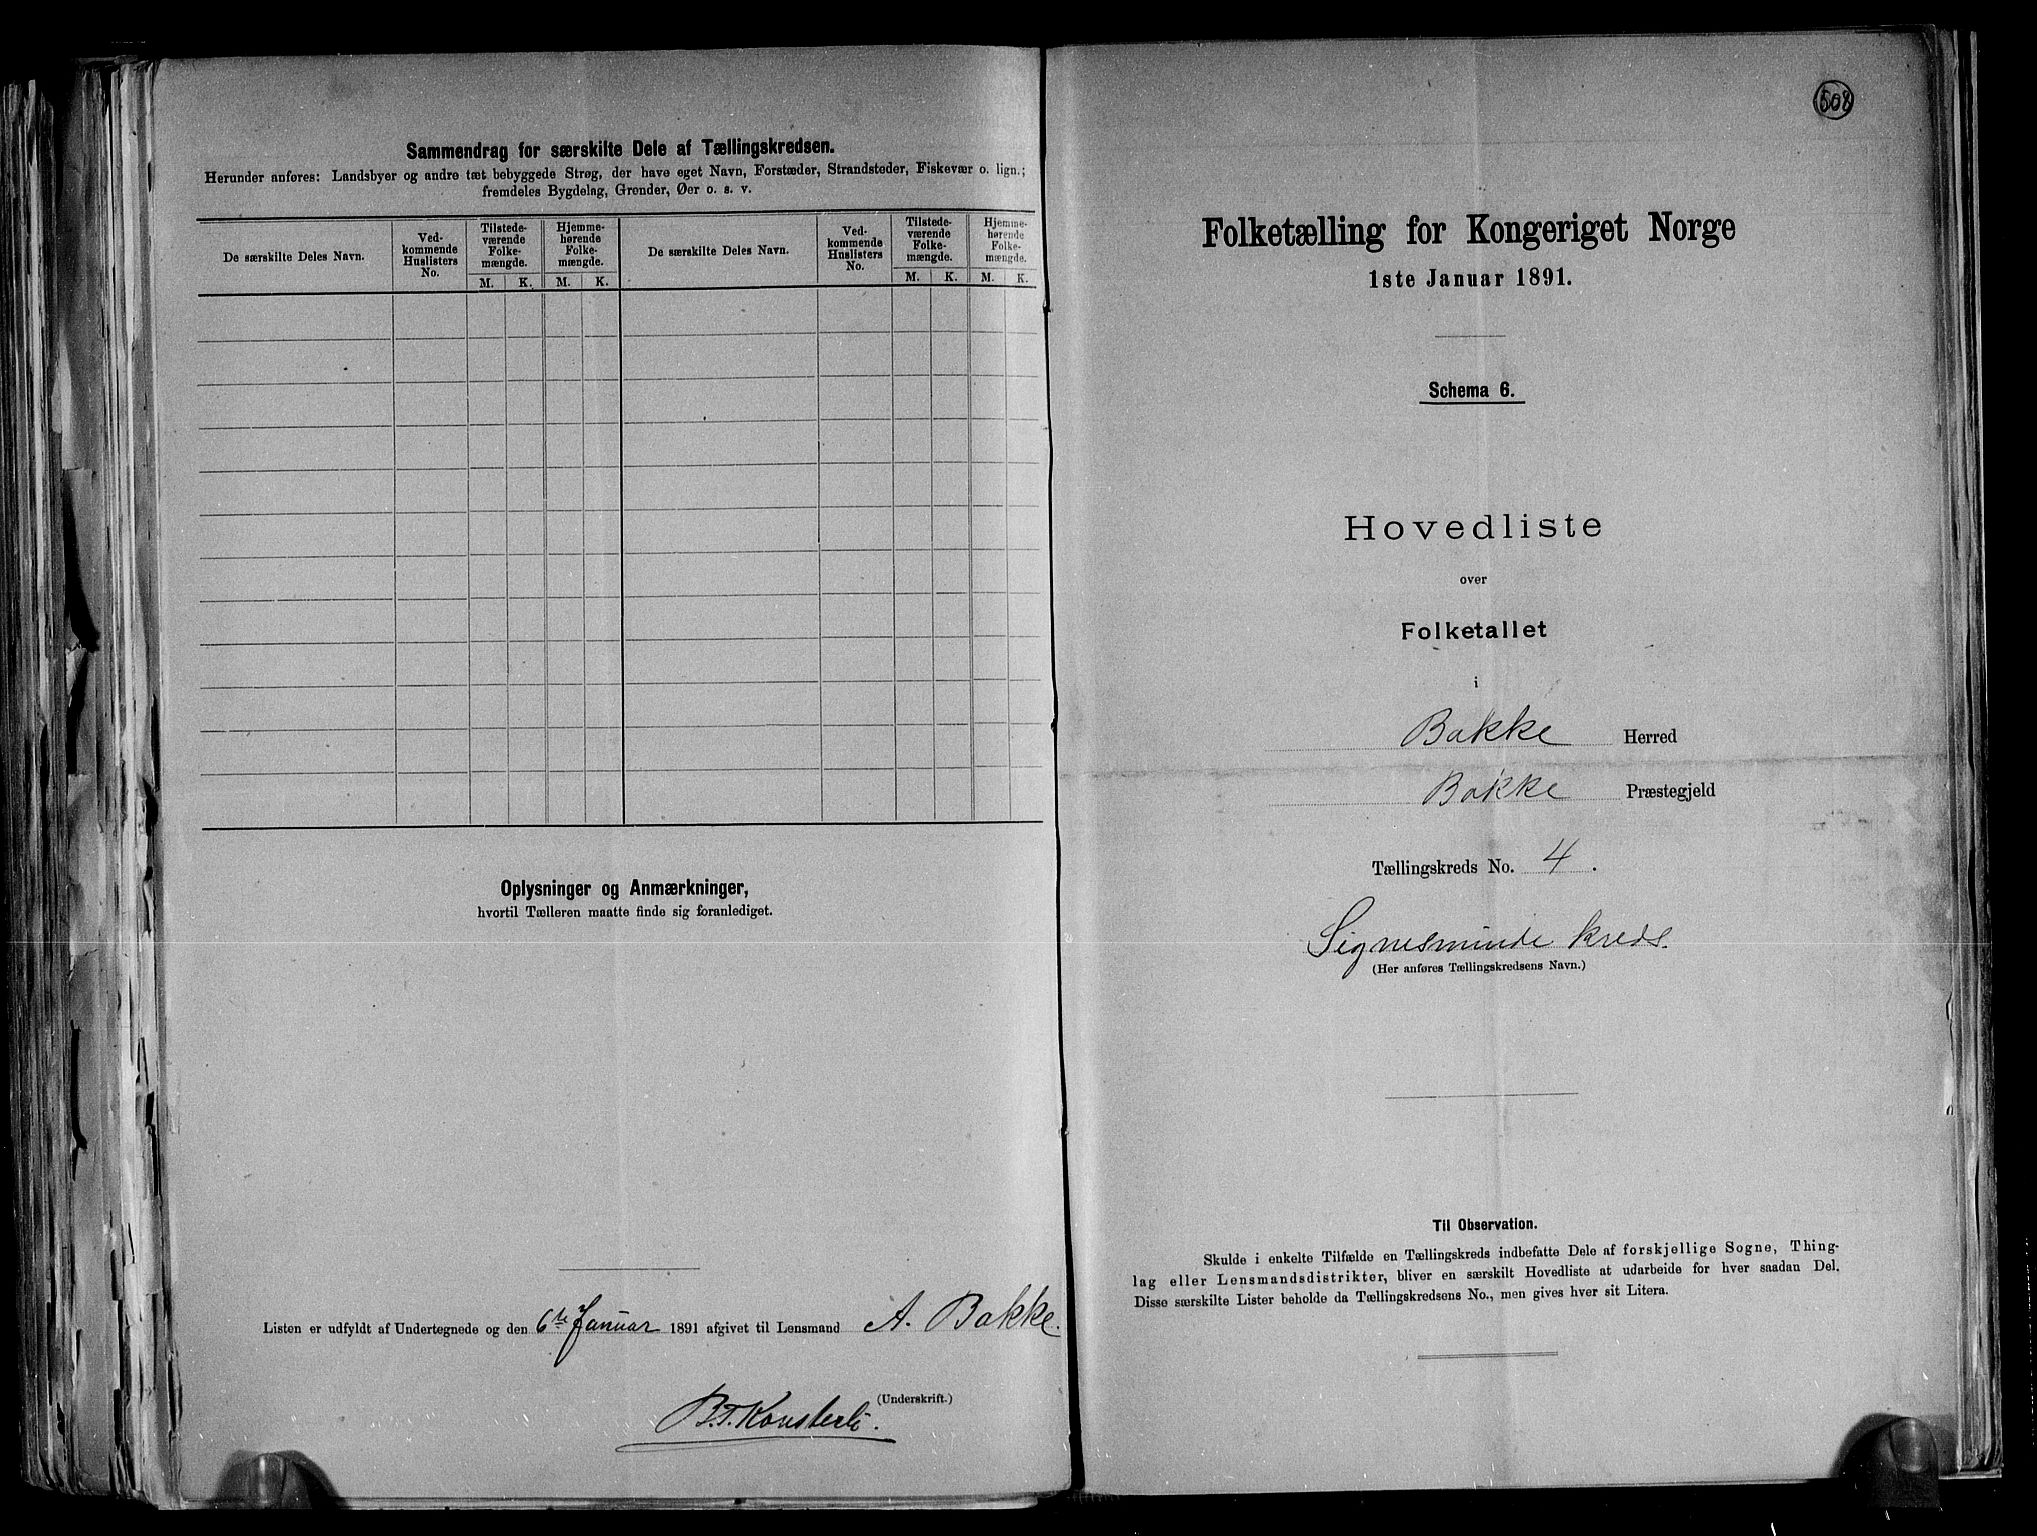 Sammendrag for særskilte Dele af Tællingskredsen.
Herunder anføres: Landsbyer og andre tæt bebyggede Strøg, der have eget Navn, Forstæder, Strandsteder, Fiskevær o. lign.;
fremdeles Bygdelag, Grender, Øer o. s. v.
De særskilte Deles Navn.
Ved-
kommende
Huslisters
No.
Tilstede-
værende
Folke-
mængde.
Hjemme-
hørende
Folke-
mængde.
M. K. M. K.
De særskilte Deles Navn.
Ved-
kommende
Huslisters
No.
Tilstede-
værende
Folke-
mængde.
Hjemme-
hørende
Folke-
mængde.
M. K. M. K.
Oplysninger og Anmærkninger,
hvortil Tælleren maatte finde sig foranlediget.
Listen er udfyldt af Undertegnede og den 6te Januar 1891 afgivet til Lensmand A. Bakke.
(Underskrift.)
508
Folketælling for Kongeriget Norge
1ste Januar 1891.
Schema 6.
Hovedliste
over
Folketallet
i
Bakke Herred
Bakke Præstegjeld
Tællingskreds No. 4.
Signesminde kreds.
(Her anføres Tællingskredsens Navn.)
Til Observation.
Skulde i enkelte Tilfælde en Tællingskreds indbefatte Dele af forskjellige Sogne, Thing-
lag eller Lensmandsdistrikter, bliver en særskilt Hovedliste at udarbeide for hver saadan Del.
Disse særskilte Lister beholde da Tællingskredsens No., men gives hver sit Litera.